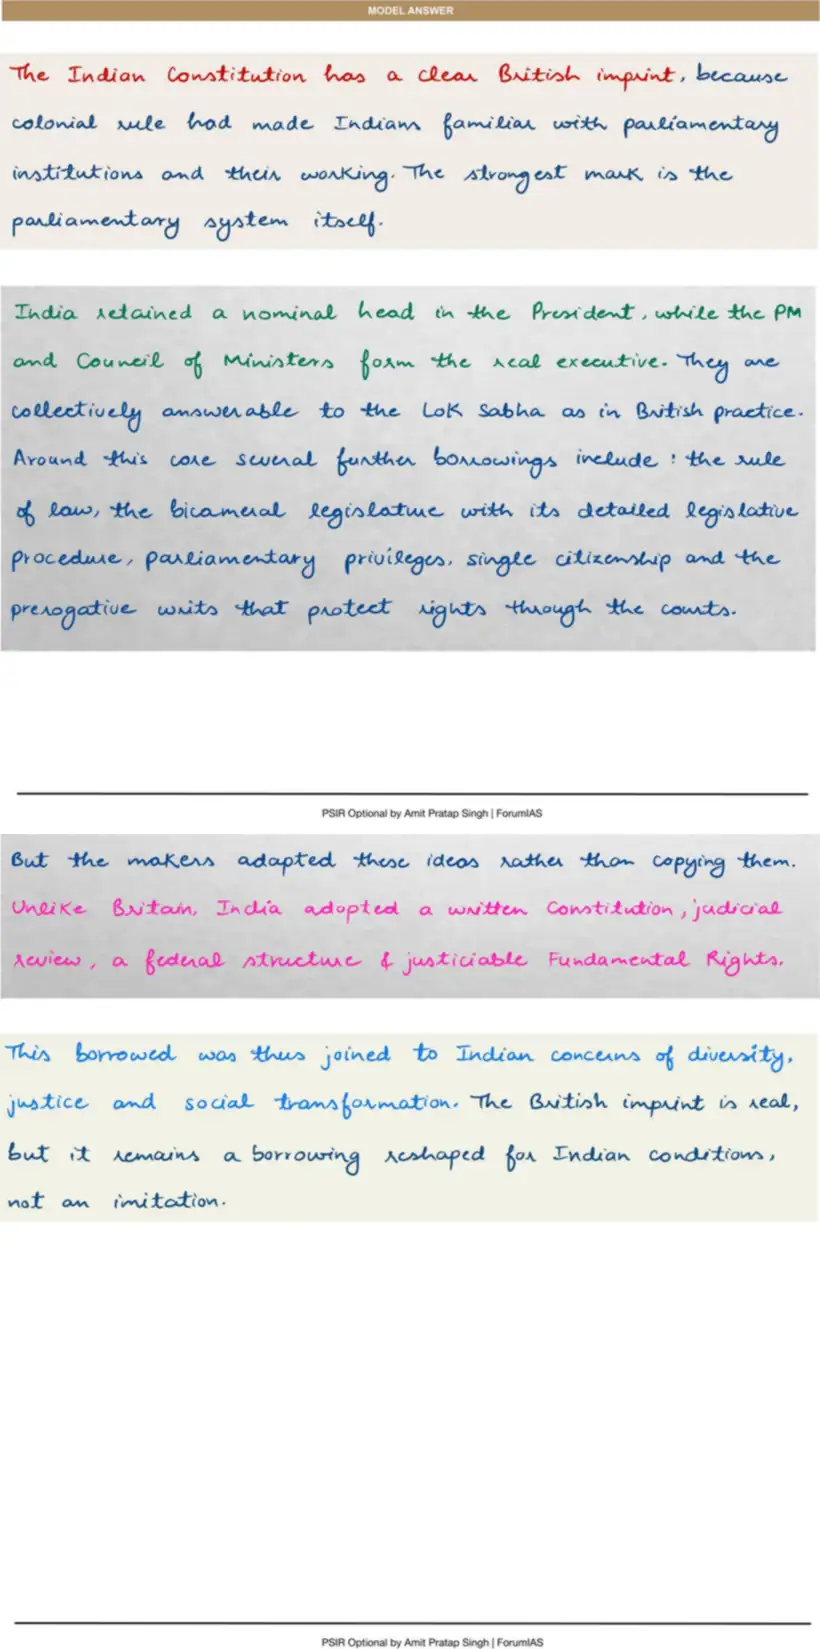 MODEL ANSWER
The Indian Constitution has a clear British imprint, because
colonial rule had made Indians familiar with parliamentary
institutions and their working. The strongest mark is the
parliamentary system itself.
India retained a nominal head in the President, while the PM
and Council of Ministers form the real executive. They are
collectively answerable to the Lok Sabha as in British practice.
Around this core several further borrowings include : the rule
of law, the bicameral legislature with its detailed legislative
procedure, parliamentary privileges, single citizenship and the
prerogative writs that protect rights through the courts.
PSIR Optional by Amit Pratap Singh | ForumIAS
But the makers adapted these ideas rather than copying them.
Unlike Britain, India adopted a written Constitution, judicial
review, a federal structure & justiciable Fundamental Rights.
This borrowed was thus joined to Indian concerns of diversity,
justice and social transformation. The British imprint is real,
but it remains a borrowing reshaped for Indian conditions,
not an imitation.
PSIR Optional by Amit Pratap Singh | ForumIAS